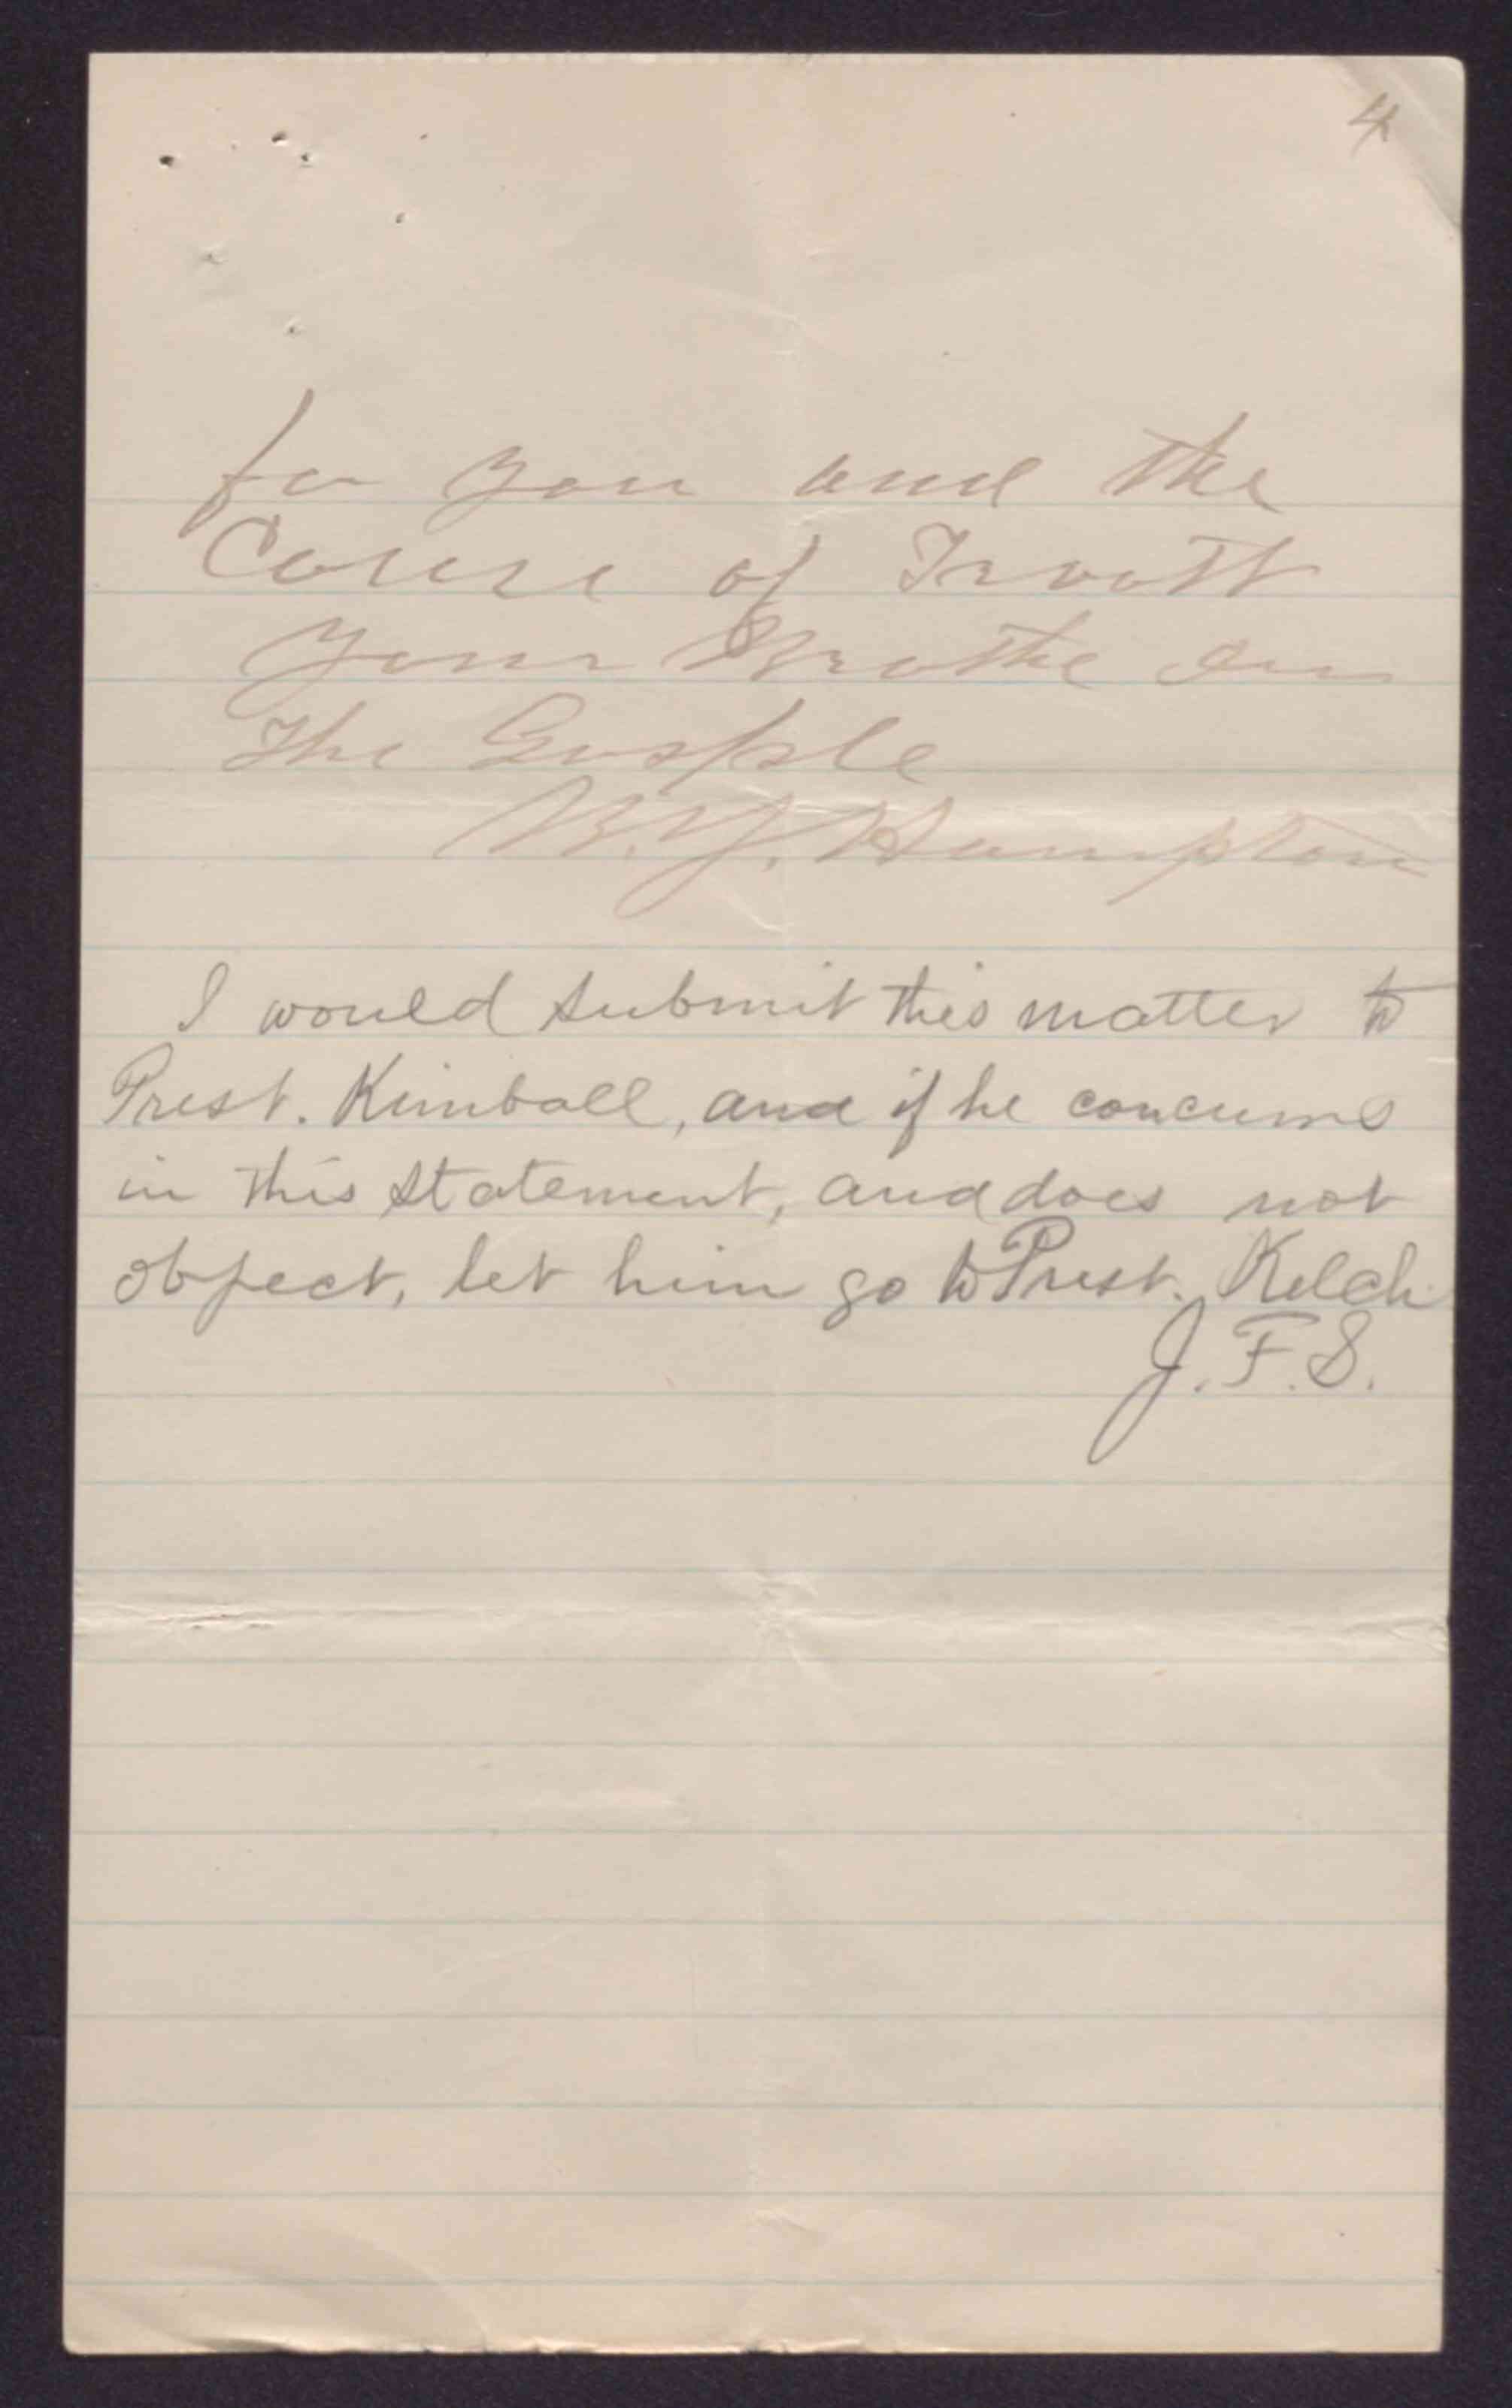 4
for you and the
Couse of Trouth
Your Brothe in
The Gosple
B.Y. Hampton
I would submit this matter to
Prest. Kimball, and if he concurrs
in this statement, and does not
object, let him go to Prest. Kelch
J.F.S.